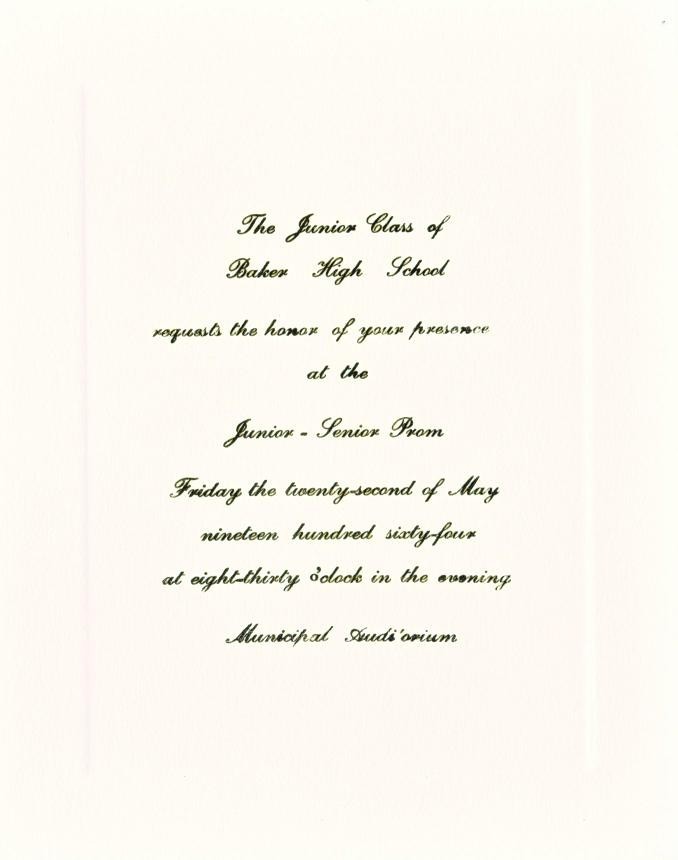 The Junior Class of
Baker High School
requests the honor of your presence
at the
Junior - Senior Prom
Friday the twenty-second of May
nineteen hundred sixty-four
at eight-thirty o'clock in the evening
Municipal Auditorium